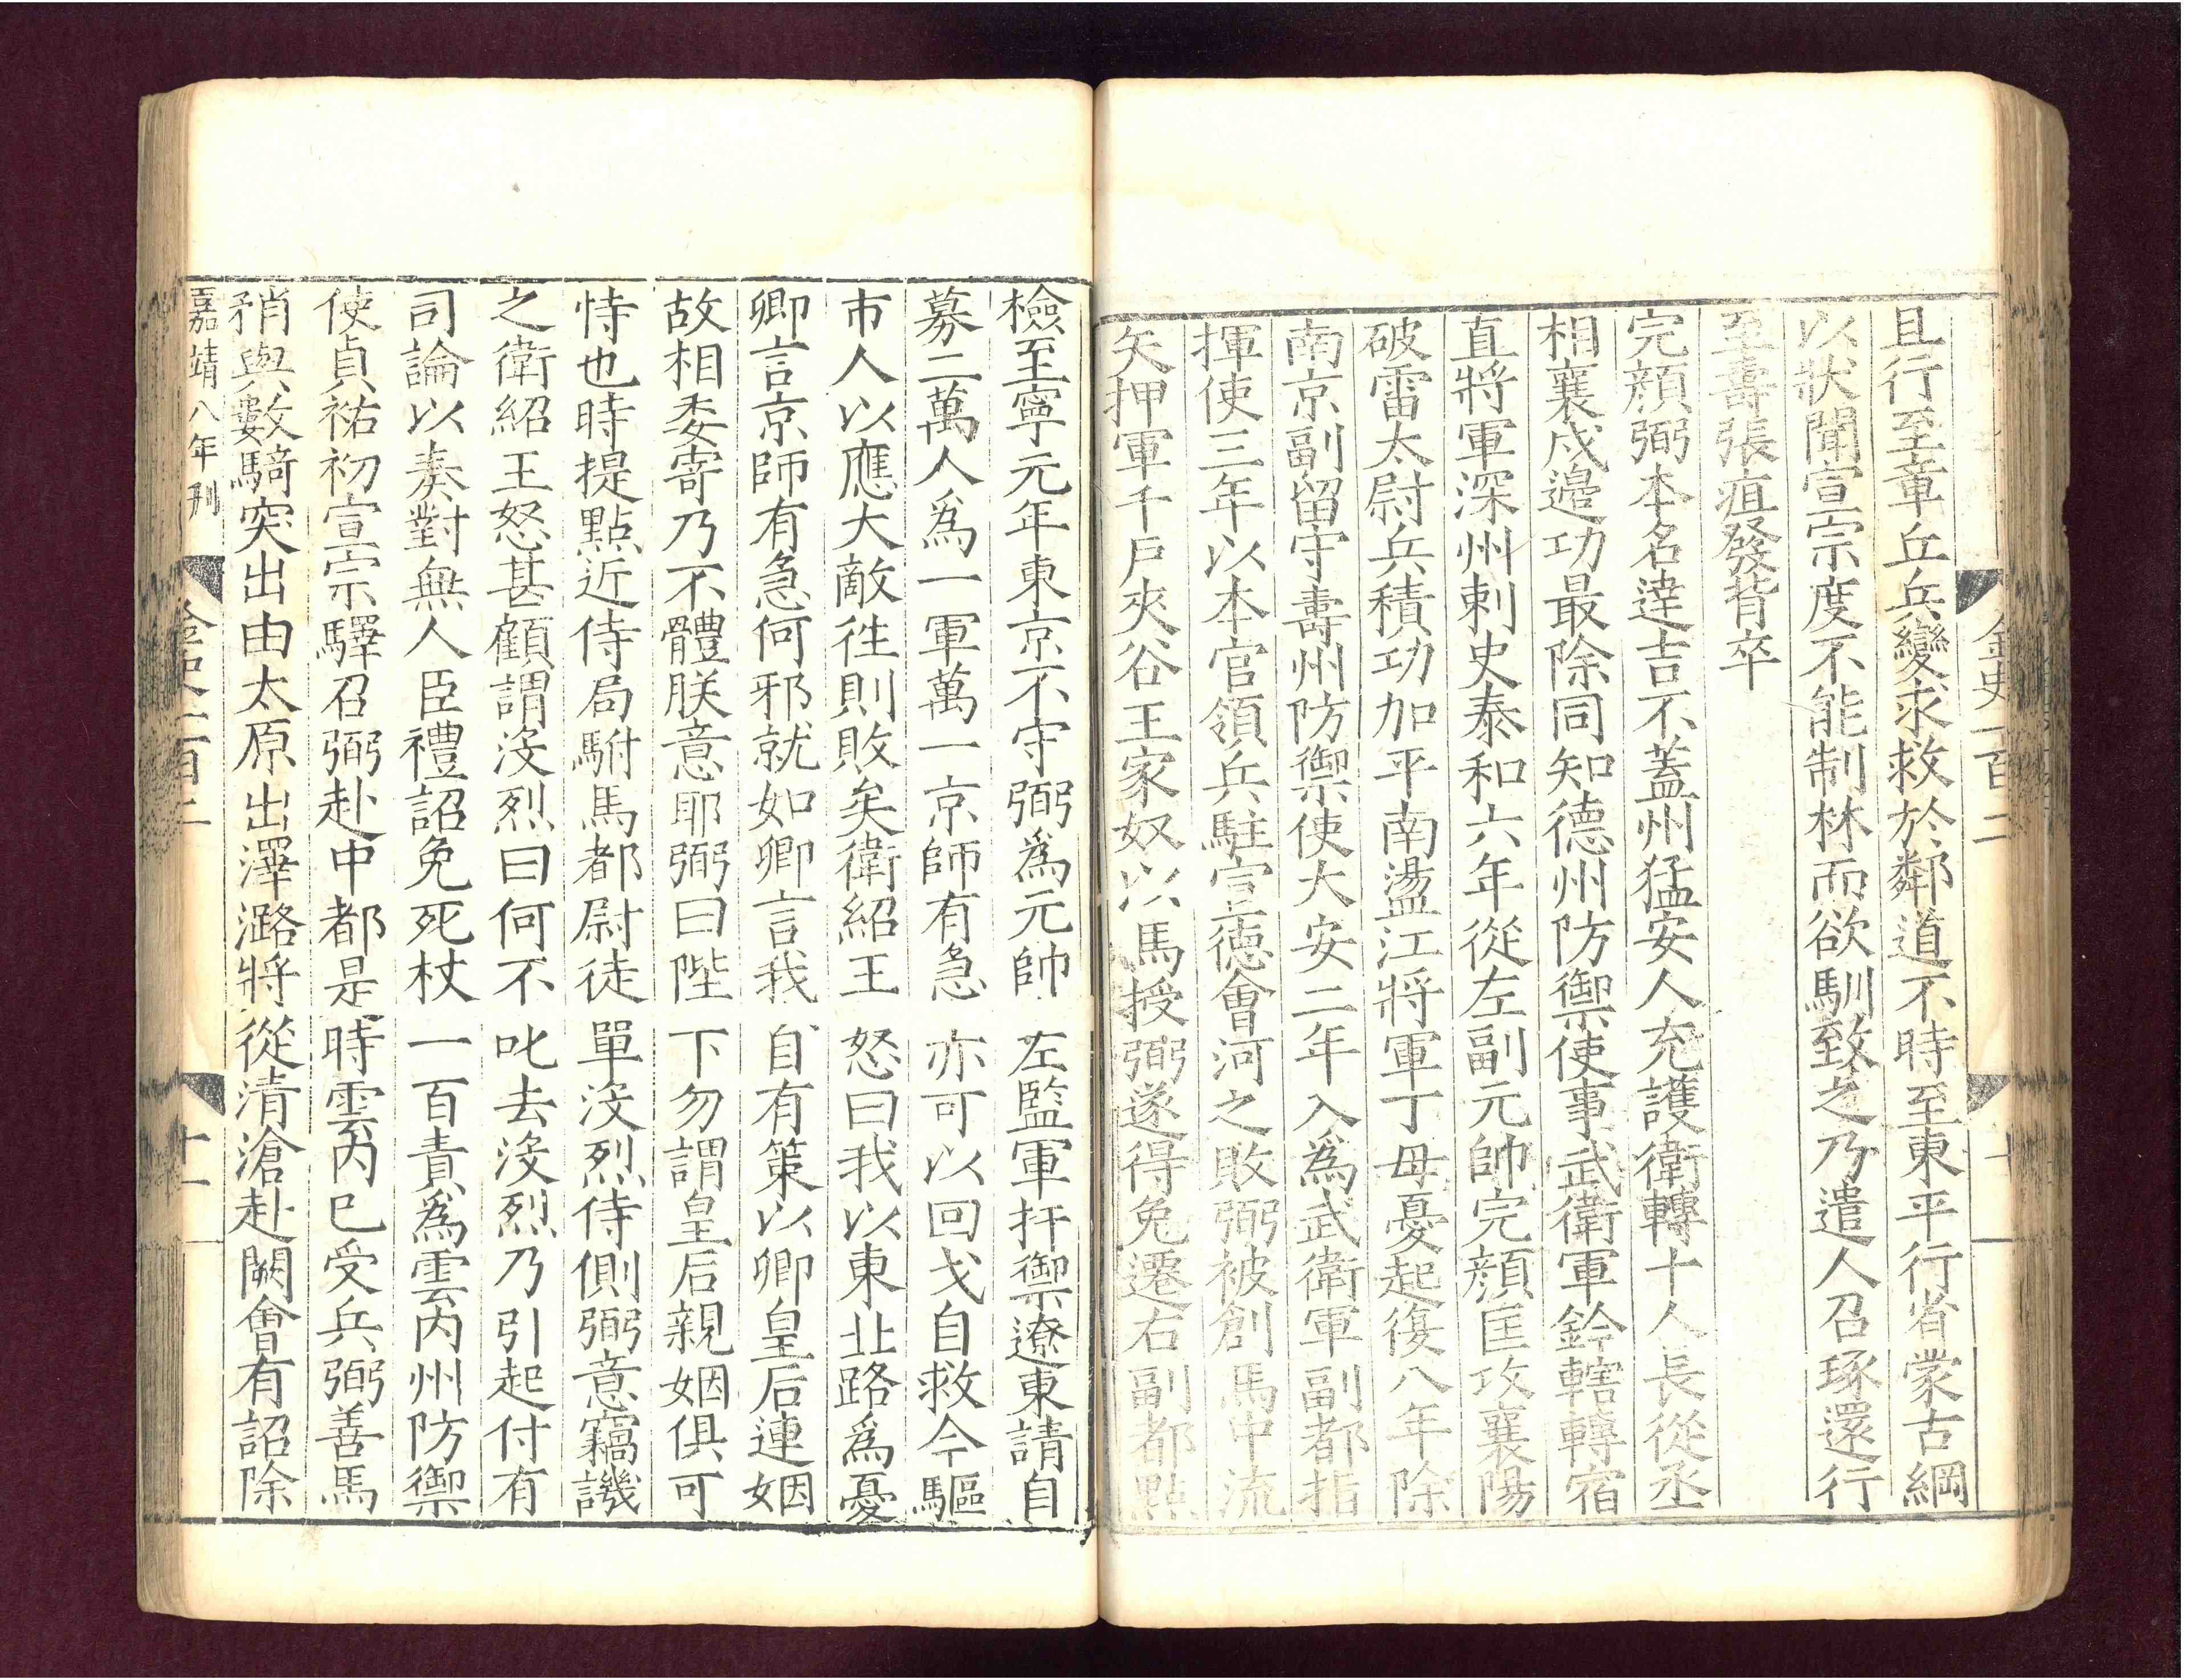 金史一百二
十
且行至章丘兵變求救於鄰道不時至東平行省蒙古綱
以狀聞宣宗度不能制林而欲馴致之乃遣人召琢還行
至壽張疽發背卒
完顔弼本名達吉不蓋州猛安人充護衛轉十人長從丞
相襄戍邉功最除同知德州防禦使事武衛軍鈐轄轉宿
直將軍深州刺史泰和六年從左副元帥完顔匡攻襄陽
破雷太尉兵積功加平南盪江將軍丁母憂起復八年除
南京副留守壽州防禦使大安二年入爲武衛軍副都指
揮使三年以本官領兵駐宣德會河之敗弼被創馬中流
矢押軍千戸夾谷王家奴以馬授弼遂得免遷右副都點
檢至寧元年東京不守弼爲元帥左監軍扞禦遼東請自
募二萬人爲一軍萬一京師有急亦可以回戈自救今驅
市人以應大敵徃則敗矣衛紹王怒曰我以東北路爲憂
卿言京師有急何邪就如卿言我自有策以卿皇后連姻
故相委寄乃不體朕意耶弼曰陛下勿謂皇后親姻俱可
恃也時提點近侍局駙馬都尉徒單沒烈侍側弼意竊譏
之衛紹王怒甚顧謂沒烈曰何不叱去沒烈乃引起付有
司論以奏對無人臣禮詔免死杖一百責爲雲内州防禦
使貞祐初宣宗驛召弼赴中都是時雲内已受兵弼善馬
矟與數騎突出由太原出澤潞將從清滄赴闕會有詔除
嘉靖八年刋
金史一百二
十一